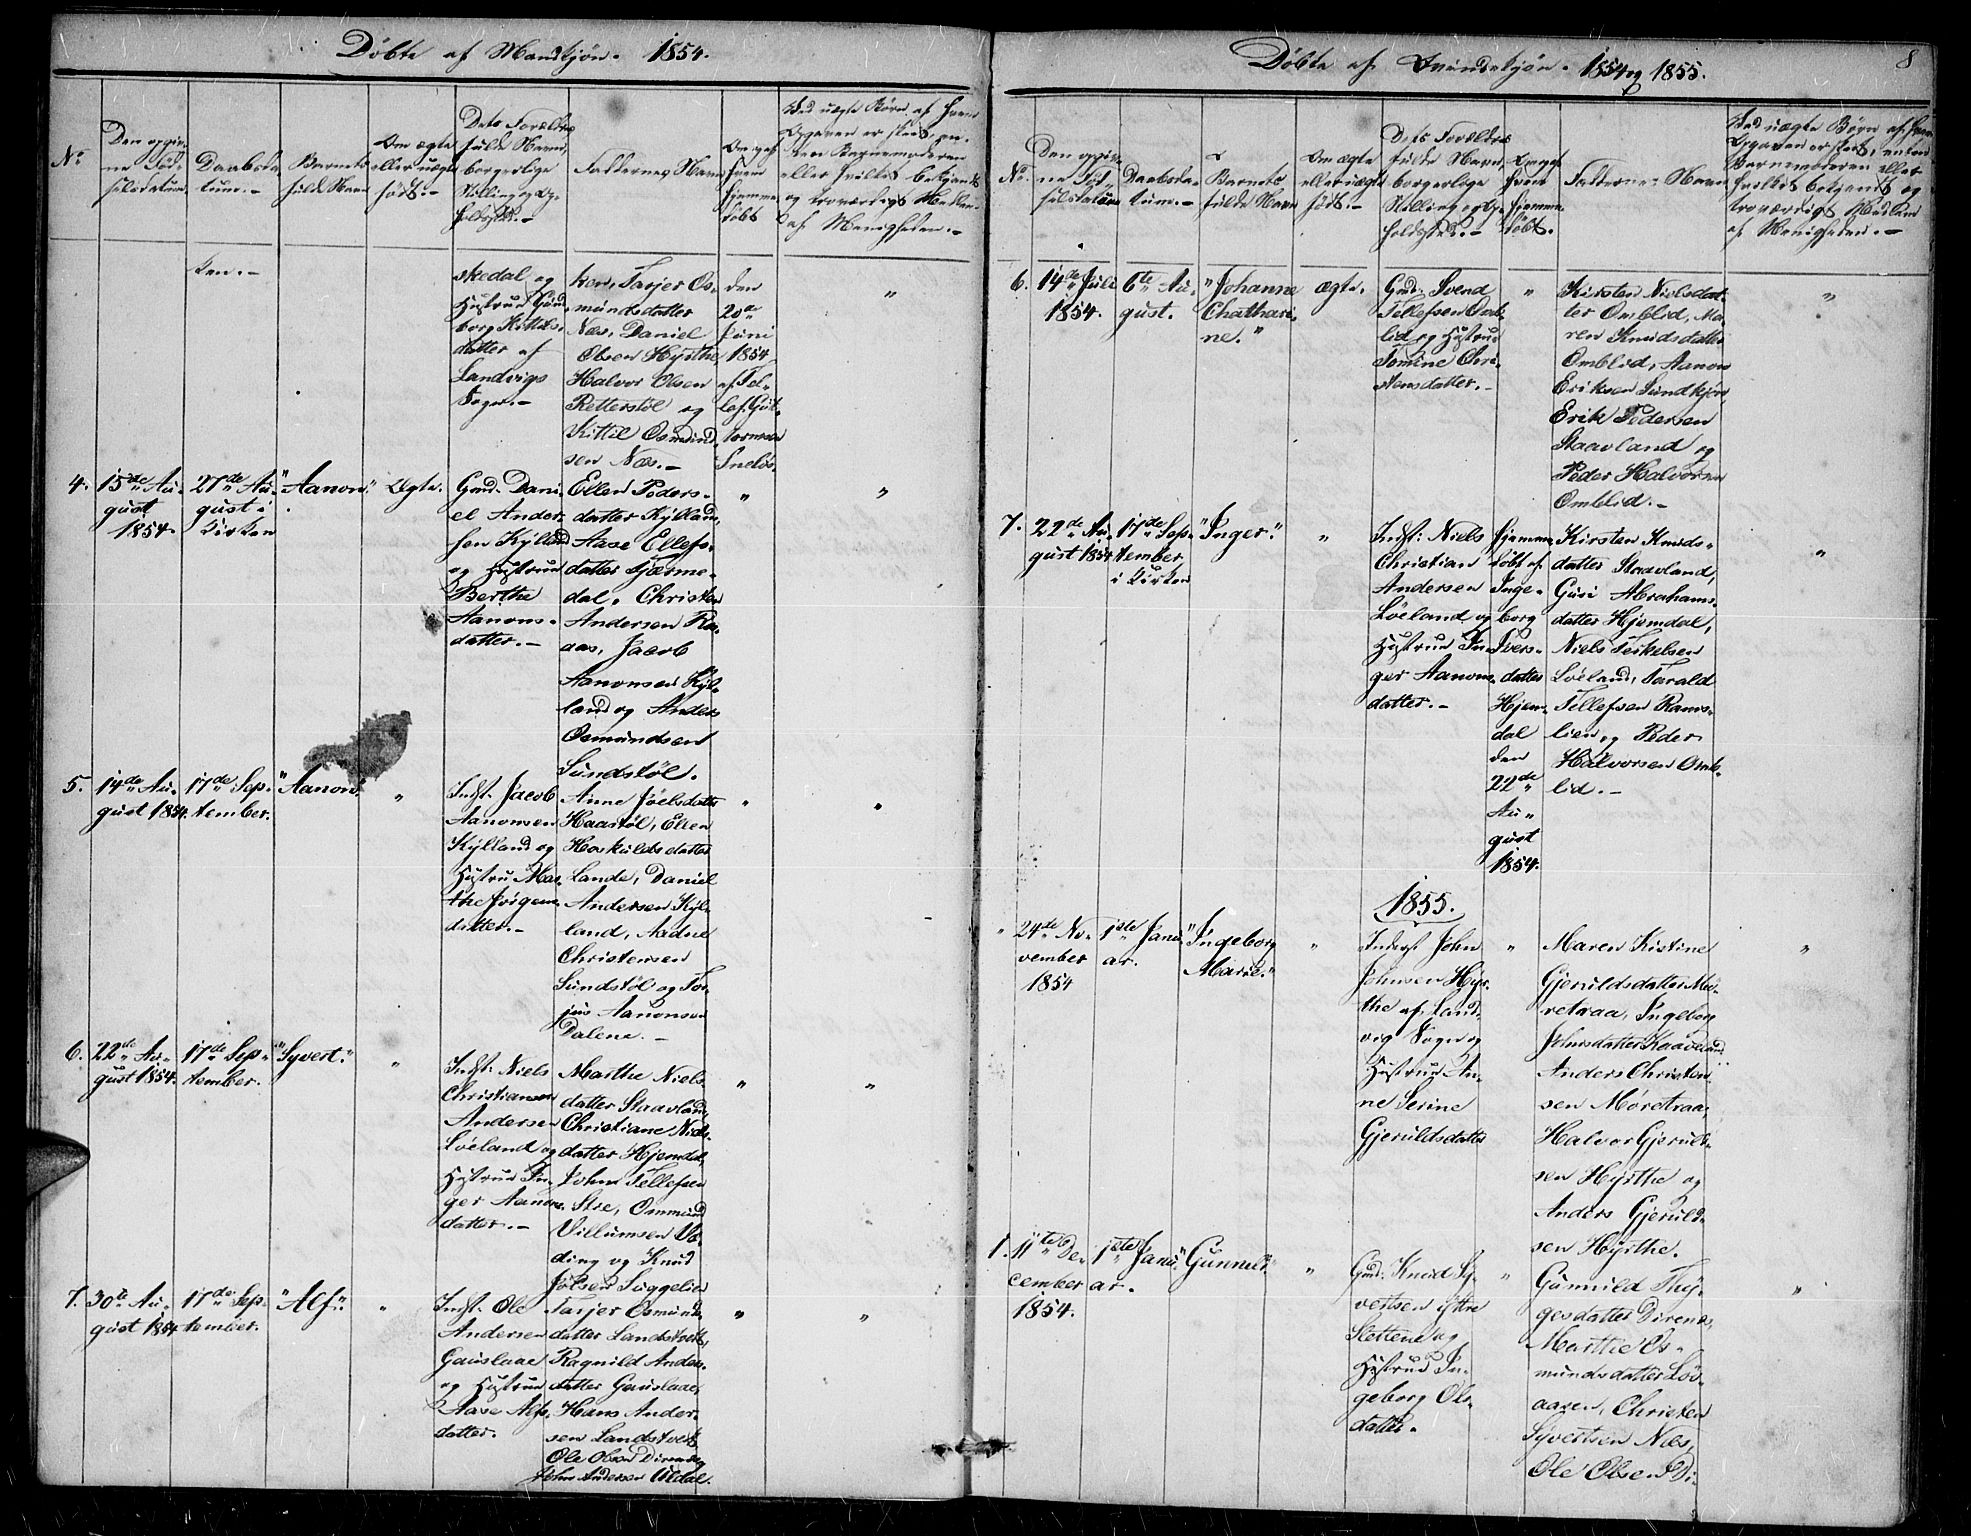 Döbte af Mandkjön. 1854.
No
Den opgiv-
ne Föd-
selsdatum.
Daabsda-
tum.-
Barnets
fulde Navn
Om ægte
eller uægte
födt.-
Dets Forældres
fulde Navn,
borgerlige
Stilling og Op-
holdssted.-
Faddernes Navn
Om og af
hvem
hjemme-
döbt
Ved uægte Börn af hvem
Opgaven er skeet, en-
ten Barnemoderen
eller hvilket bekjendt
og troværdigt Medlem
af Menigheden.-
ken.-
skedal og
Hustrue Gun-
borg Kittels-
datter af
Landvigs
Sogn.-
ken, Tarjer Os-
mundsdatter
Næs, Daniel
Olsen Hyrthe,
Halvor Olsen
Retterstöl og
Kittil Osmund-
sen Næs.-
den
20de
Juni
1854
af Tel-
lef Gut-
tormsen
"
4.
15de Au-
gust
1854.
27de Au-
gust i
Kirken
"Aanon."
Ægte.
Gmd. Dani-
el Ander-
sen Kylland
og Hustrue
Berthe
Aanons-
datter.-
Ellen Peders-
datter Kylland,
Aase Ellefs-
datter Hjærme-
dal, Christen
Andersen Ra-
aas, Jacob
Aanonsen Kyl-
land og Anders
Osmundsen
Sundstöl.
"
"
5.
14de Au-
gust 1854.
17de Sep-
tember.
"Aanon"
"
Indst. Jacob
Aanonsen
Kylland og
Hustru Mar-
the Jörgens-
datter.-
Anne Joelsdatter
Haastöl, Ellen
Hoskuldsdatter
Lande, Daniel
Andersen Kyl-
land, Aadne
Christensen
Sundstöl og Tor-
jus Aanonsen
Dalene.-
"
"
6.
22de Au-
gust 1854.
17de Sep-
tember.
"Syvert."
"
Indst. Niels
Christiansen
Andersen
Löeland og
Hustrue In-
ger Aanons-
datter.-
Marthe Niels-
datter Staavland,
Christiane Niels-
datter Hjemdal,
John Tellefsen
Stie, Ommund
Villumsen Vö-
ding og Knud
Joelsen Suggelien
"
"
7.
30te Au-
gust 1854
17de Sep-
tember.
"Alf."
"
Indst. Ole
Andersen
Gauslaae
og Hustrue
Aase Alfs-
datter.
Tarjer Osmunds-
datter Landstvedt,
Ragnild Anders-
datter Gauslaae,
Hans Ander-
sen Landstvedt,
Ole Olsen Direnes,
John Andersen Uldal.
"
"
Döbte af Qvindekjön. 1854 og 1855.
8
No.
Den opgiv-
ne Föd-
selsdatum
Daabsda-
tum.-
Barnets
fulde Navn
Om ægte
eller uægte
födt.-
Dets Forældres
fulde Navn,
borgerlige
Stilling og Op-
holdssted.-
Om og af
hvem
hjemme-
döbt.
Faddernes Navn
Ved uægte Börn af hvem
Opgaven er skeet, enten
Barnemoderen eller
hvilket bekjendt og
troværdigt Medlem
af Menigheden.-
6.
14de Juli
1854.
6te Au-
gust.
"Johanne
Chathari-
ne."
ægte.
Gmd. Svend
Tellefsen Omb-
lid og Hustrue
Tomine Chri-
stensdatter.-
"
Kirsten Nielsdat-
ter Omblid, Ma-
ren Knudsdatter
Omblid, Aanon
Eriksen Sundkjær,
Erik Pedersen
Staavland og
Peder Halvorsen
Omblid.-
"
7.
22de Au-
gust 1854
17de Sep-
tember
i Kirken
"Inger."
"
Indst: Niels
Christian
Andersen
Löeland og
Hustrue In-
ger Aanons-
datter.-
Hjemme-
döbt af
Inge-
borg
Ivers-
datter
Hjem-
dal
den
22de
Au-
gust
1854.
Kirsten Knuds-
datter Staavland,
Guri Abrahams-
datter Hjemdal,
Niels Terkelsen
Löeland, Tarald
Tellefsen Ravs-
lien og Peder
Halvorsen Omb-
lid.-
"
1855.
"
24de No-
vember
1854
1ste Janu-
ar.
"Ingeborg
Marie."
"
Inderst John
Johnsen Hyr-
the af Land-
vig Sogn og
Hustrue An-
ne Serine
Gjeruldsdatter
"
Maren Kistine
Gjeruldsdatter Mö-
retraa, Ingeborg
Johnsdatter Kaaveland
Anders Christen-
sen Möretraa,
Halvor Gjeruld-
sen Hyrthe og
Anders Gjeruld-
sen Hyrthe.
"
1.
11te De-
cember
1854.
1ste Janu-
ar.
"Gunneld."
"
Gmd. Knud Sy-
vertsen ystre
Slettene og
Hustrue In-
geborg Ols-
datter.
"
Gunnild Thy-
gesdatter Direnes,
Marthe Os-
mundsdatter Löv-
aasen, Christen
Syvertsen Næs,
Ole Olsen Di-
"